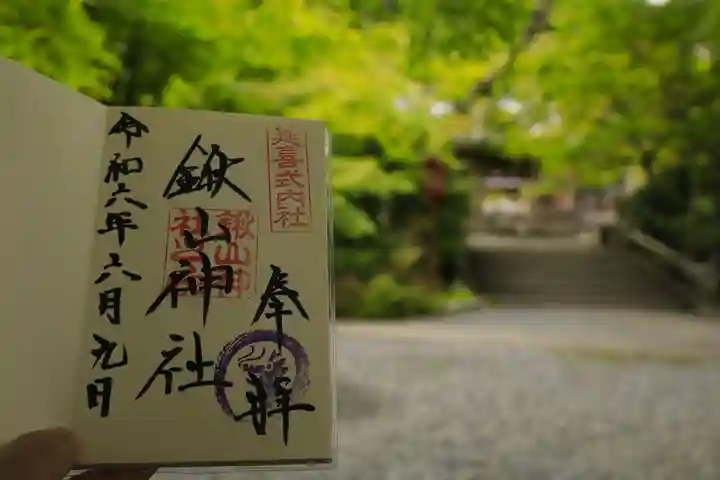 延喜式内社
奉拝
鍬山神社
令和六年六月九日